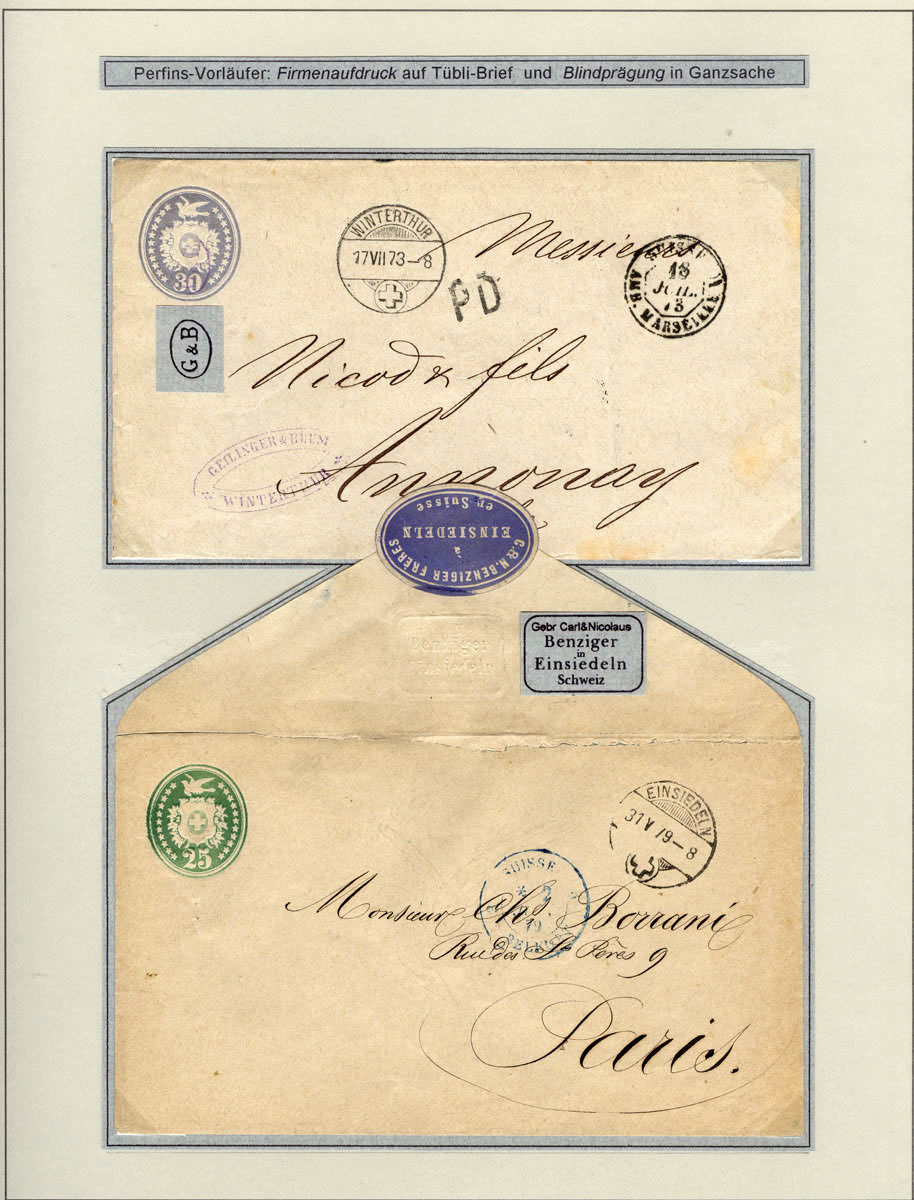 Perfins-Vorläufer: Firmenaufdruck auf Tübli-Brief und Blindprägung in Ganzsache
30
WINTERTHUR
17 VII 73–8
PD
Messieurs
SUISSE
18
JUIL.
73
AMB. MARSEILLE
G&B
Nicod & fils
GEILINGER & BLUM
WINTERTHUR
Annonay
C. & N. BENZIGER FRÈRES
à
EINSIEDELN
en Suisse
Benziger
Einsiedeln
Gebr Carl&Nicolaus
Benziger
in
Einsiedeln
Schweiz
25
EINSIEDELN
31 V 79–8
SUISSE
2
79
Monsieur Chs Borrani
Rue des Sts Pères 9
Paris.